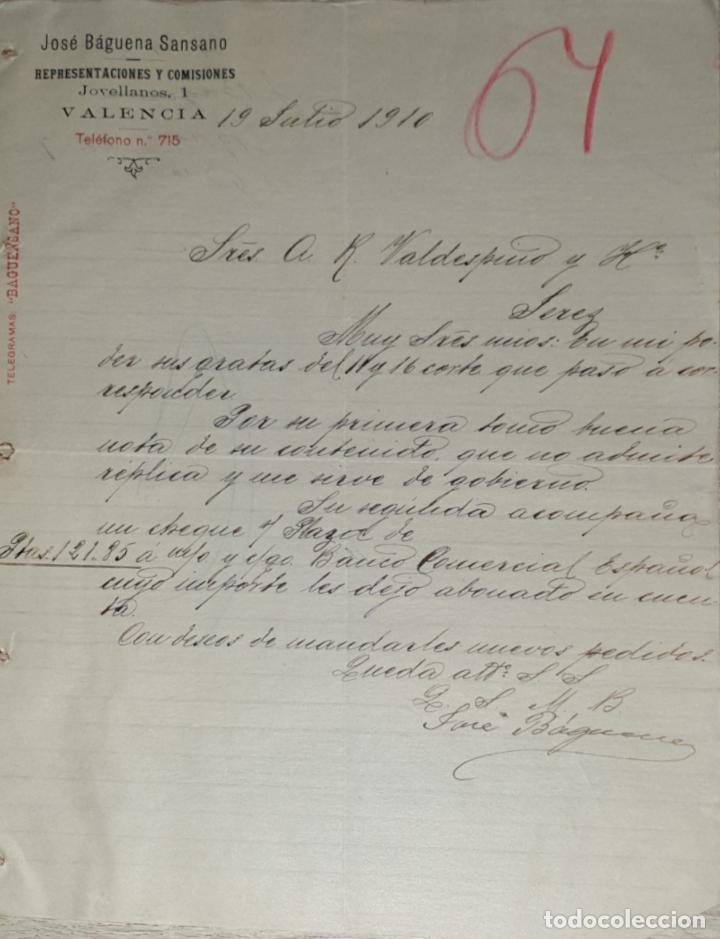 José Báguena Sansano
REPRESENTACIONES Y COMISIONES
Jovellanos, 1
VALENCIA
Teléfono n.° 715
TELEGRAMAS: "BAGUENSANO"
64
19 Julio 1910
Sres. A. R. Valdespino y Hº
Jerez
Muy Sres mios: En mi po-
der sus gratas del 11 y 16 corte que paso a cor-
responder.
Por su primera tomo buena
nota de su contenido, que no admite
réplica y me sirve de gobierno.
Su segunda acompaña
un cheque s/ Plaza de
Ptas. 121.85 á m/o y c/go. Banco Comercial Español
cuyo importe les dejo abonado en cuen-
ta.
Con deseos de mandarles nuevos pedidos.
Queda attº S S
Q. S. M. B.
José Báguena
todocoleccion